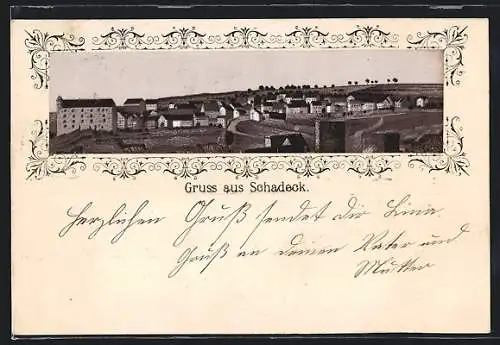 Gruss aus Schadeck.
Herzlichen Gruß sendet dir Lina.
Gruß an deinen Vater und
Mutter